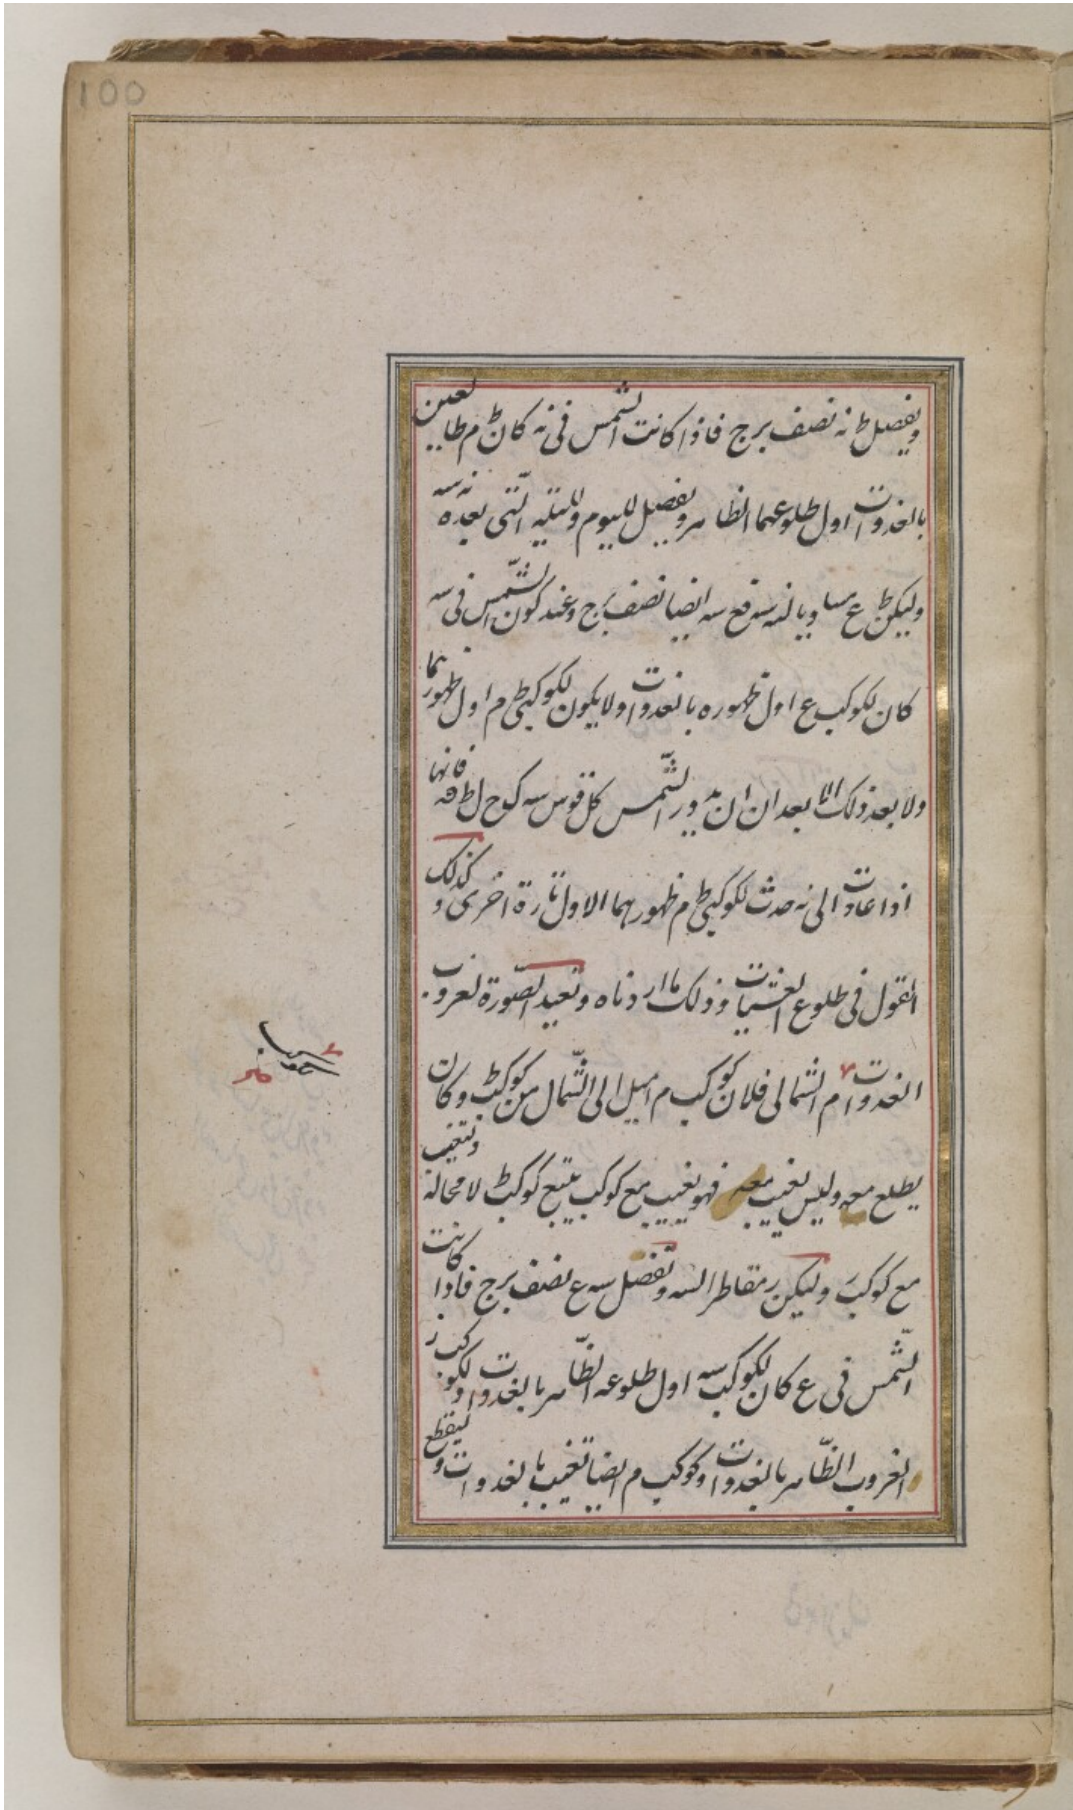 100
ويفصل ط نه نصف برج فاذا كانت الشمس فى نه كان ط م طالعين
بالغدوات اول طلوعهما الظاهر ويفصل لليوم والليلة التى بعده نه سه
وليكن ط ع مساويا لنه سه فع سه ايضا نصف برج وعند كون الشمس فى سه
كان لكوكب ع اول ظهوره بالغدوات ولا يكون لكوكبى ط م اول ظهورهما
ولا بعد ذلك الا بعد ان يدور الشمس كل قوس سه ل ط فانها
اذا عادت الى نه حدث لكوكبى ط م ظهورهما الاول تارة اخرى وكذلك
القول فى طلوع العشيات وذلك ما اردناه ونعيد الصورة لغروب
الغدوات م الشمالى فلان كوكب م اميل الى الشمال من كوكب ط وكان
يطلع معه وليس يغيب معه فهو يغيب مع كوكب يتبع كوكب ط لا محالة وتغيب
مع كوكب وليكن ر مقاطر السه وتفصل سه ع نصف برج فاذا كانت
الشمس فى ع كان لكوكب سه اول طلوعه الظاهر بالغدوات ولكوكب ر
الغروب الظاهر بالغدوات وكوكب م ايضا تغيب بالغدوات وليقطع